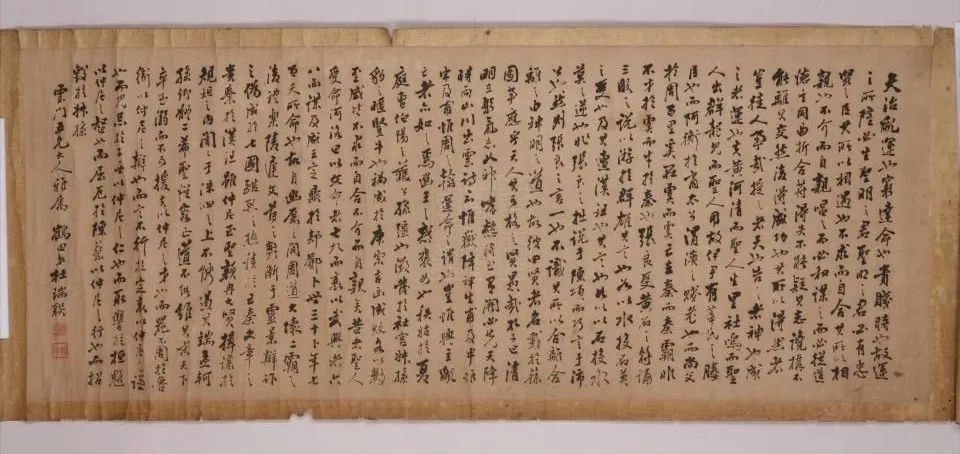 夫治亂運也窮達命也貴賤時也故運
之將隆必生聖明之君聖明之君必有忠
賢之臣其所以相遇也不求而自合其所以相
親也不介而自親唱之而必和謀之而必從道
德玄同曲折合符得失不能疑其志讒構不
能離其交然後得成功也其所以得然者
豈徒人事哉授之者天也告之者神也成
之者運也夫黃河清而聖人生里社鳴而聖
人出群龍見而聖人用故伊尹有莘氏之媵
臣也而阿衡於商太公渭濱之賤老也而尚父
於周百里奚在虞而虞亡在秦而秦霸非
不才於虞而才於秦也張良受黃石之符誦
三略之說以游於群雄其言也如以水投石莫
之受也及其遭漢祖其言也如以石投水
莫之逆也非張良之拙說于陳項而巧言于沛
公也然則張良之言一也不識其所以合離合
離之由神明之道也故彼四賢者名載於籙
圖事應乎天人其可格之賢愚哉孔子曰清
明在躬氣志如神嗜慾將至有開必先天降
時雨山川出雲詩云惟嶽降神生甫及申惟
申及甫惟周之翰運命之謂也豈惟興主亂
亡者亦如之焉幽王之惑褒女也祅始於夏
庭曹伯陽之獲公孫彊也徵發於社宮叔孫
豹之暱豎牛也禍成於庚宗吉凶成敗各以數
至咸皆不求而自合不介而自親矣昔者聖人
受命河洛曰以文命者七九而衰以武興者六
八而謀及成王定鼎於郟鄏卜世三十卜年七
百天所命也故自幽厲之間周道大壞二霸之
後禮樂陵遲文薄之弊漸于靈景辯詐
之偽成於七國酷烈之極積于亡秦文章之
貴棄於漢祖雖仲尼至聖顏冉大賢揖讓於
規矩之內誾誾于洙泗之上不能遏其端孟軻
孫卿體二希聖從容正道不能維其末天下
卒至於溺而不可援夫以仲尼之才也而器不周於魯
衛以仲尼之辯也而言不行於定哀以仲尼之謙
也而見忌於子西以仲尼之仁也而取讎於桓魋
以仲尼之智也而屈厄於陳蔡以仲尼之行也而招
毀於叔孫
雲門五兄大人雅屬 鶴田弟杜瑞聯